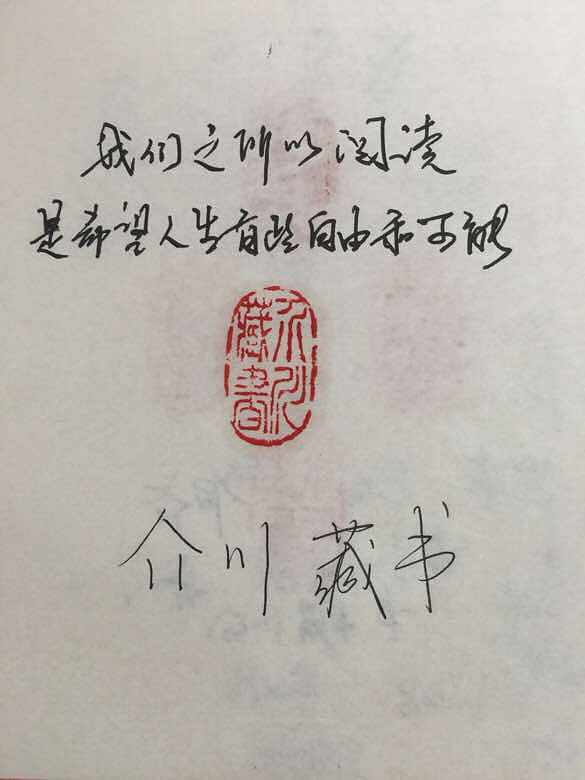 我们之所以阅读
是希望人生有些自由和可能
介川
藏書
介川藏书